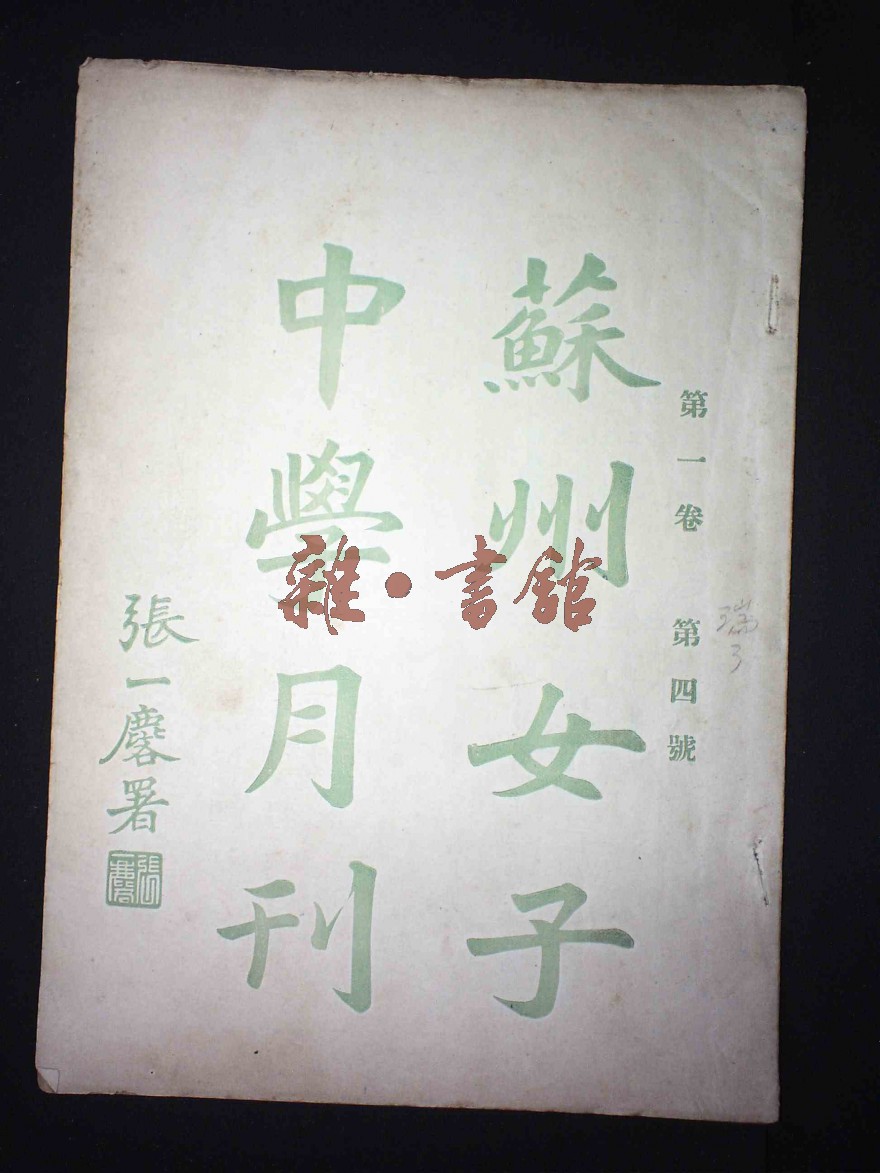 第一卷 第四號
蘇州女子
中學月刊
張一麐署
張一麐
雜·書館